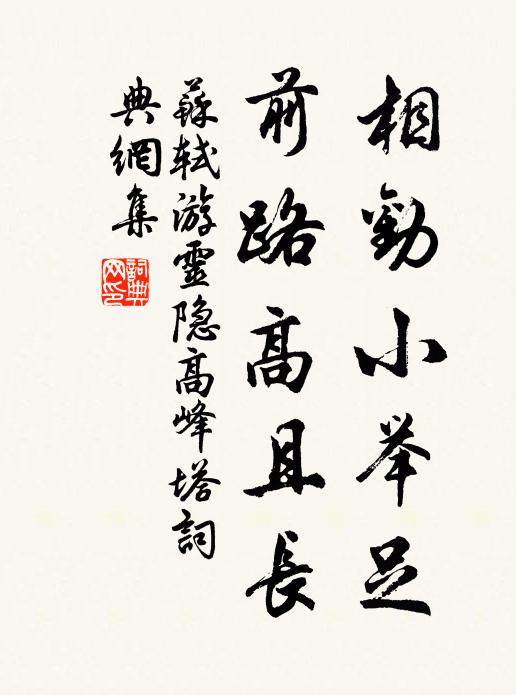 相勸小举足
前路高且長
蘇軾游靈隐高峰塔詞
典網集
詞典网印